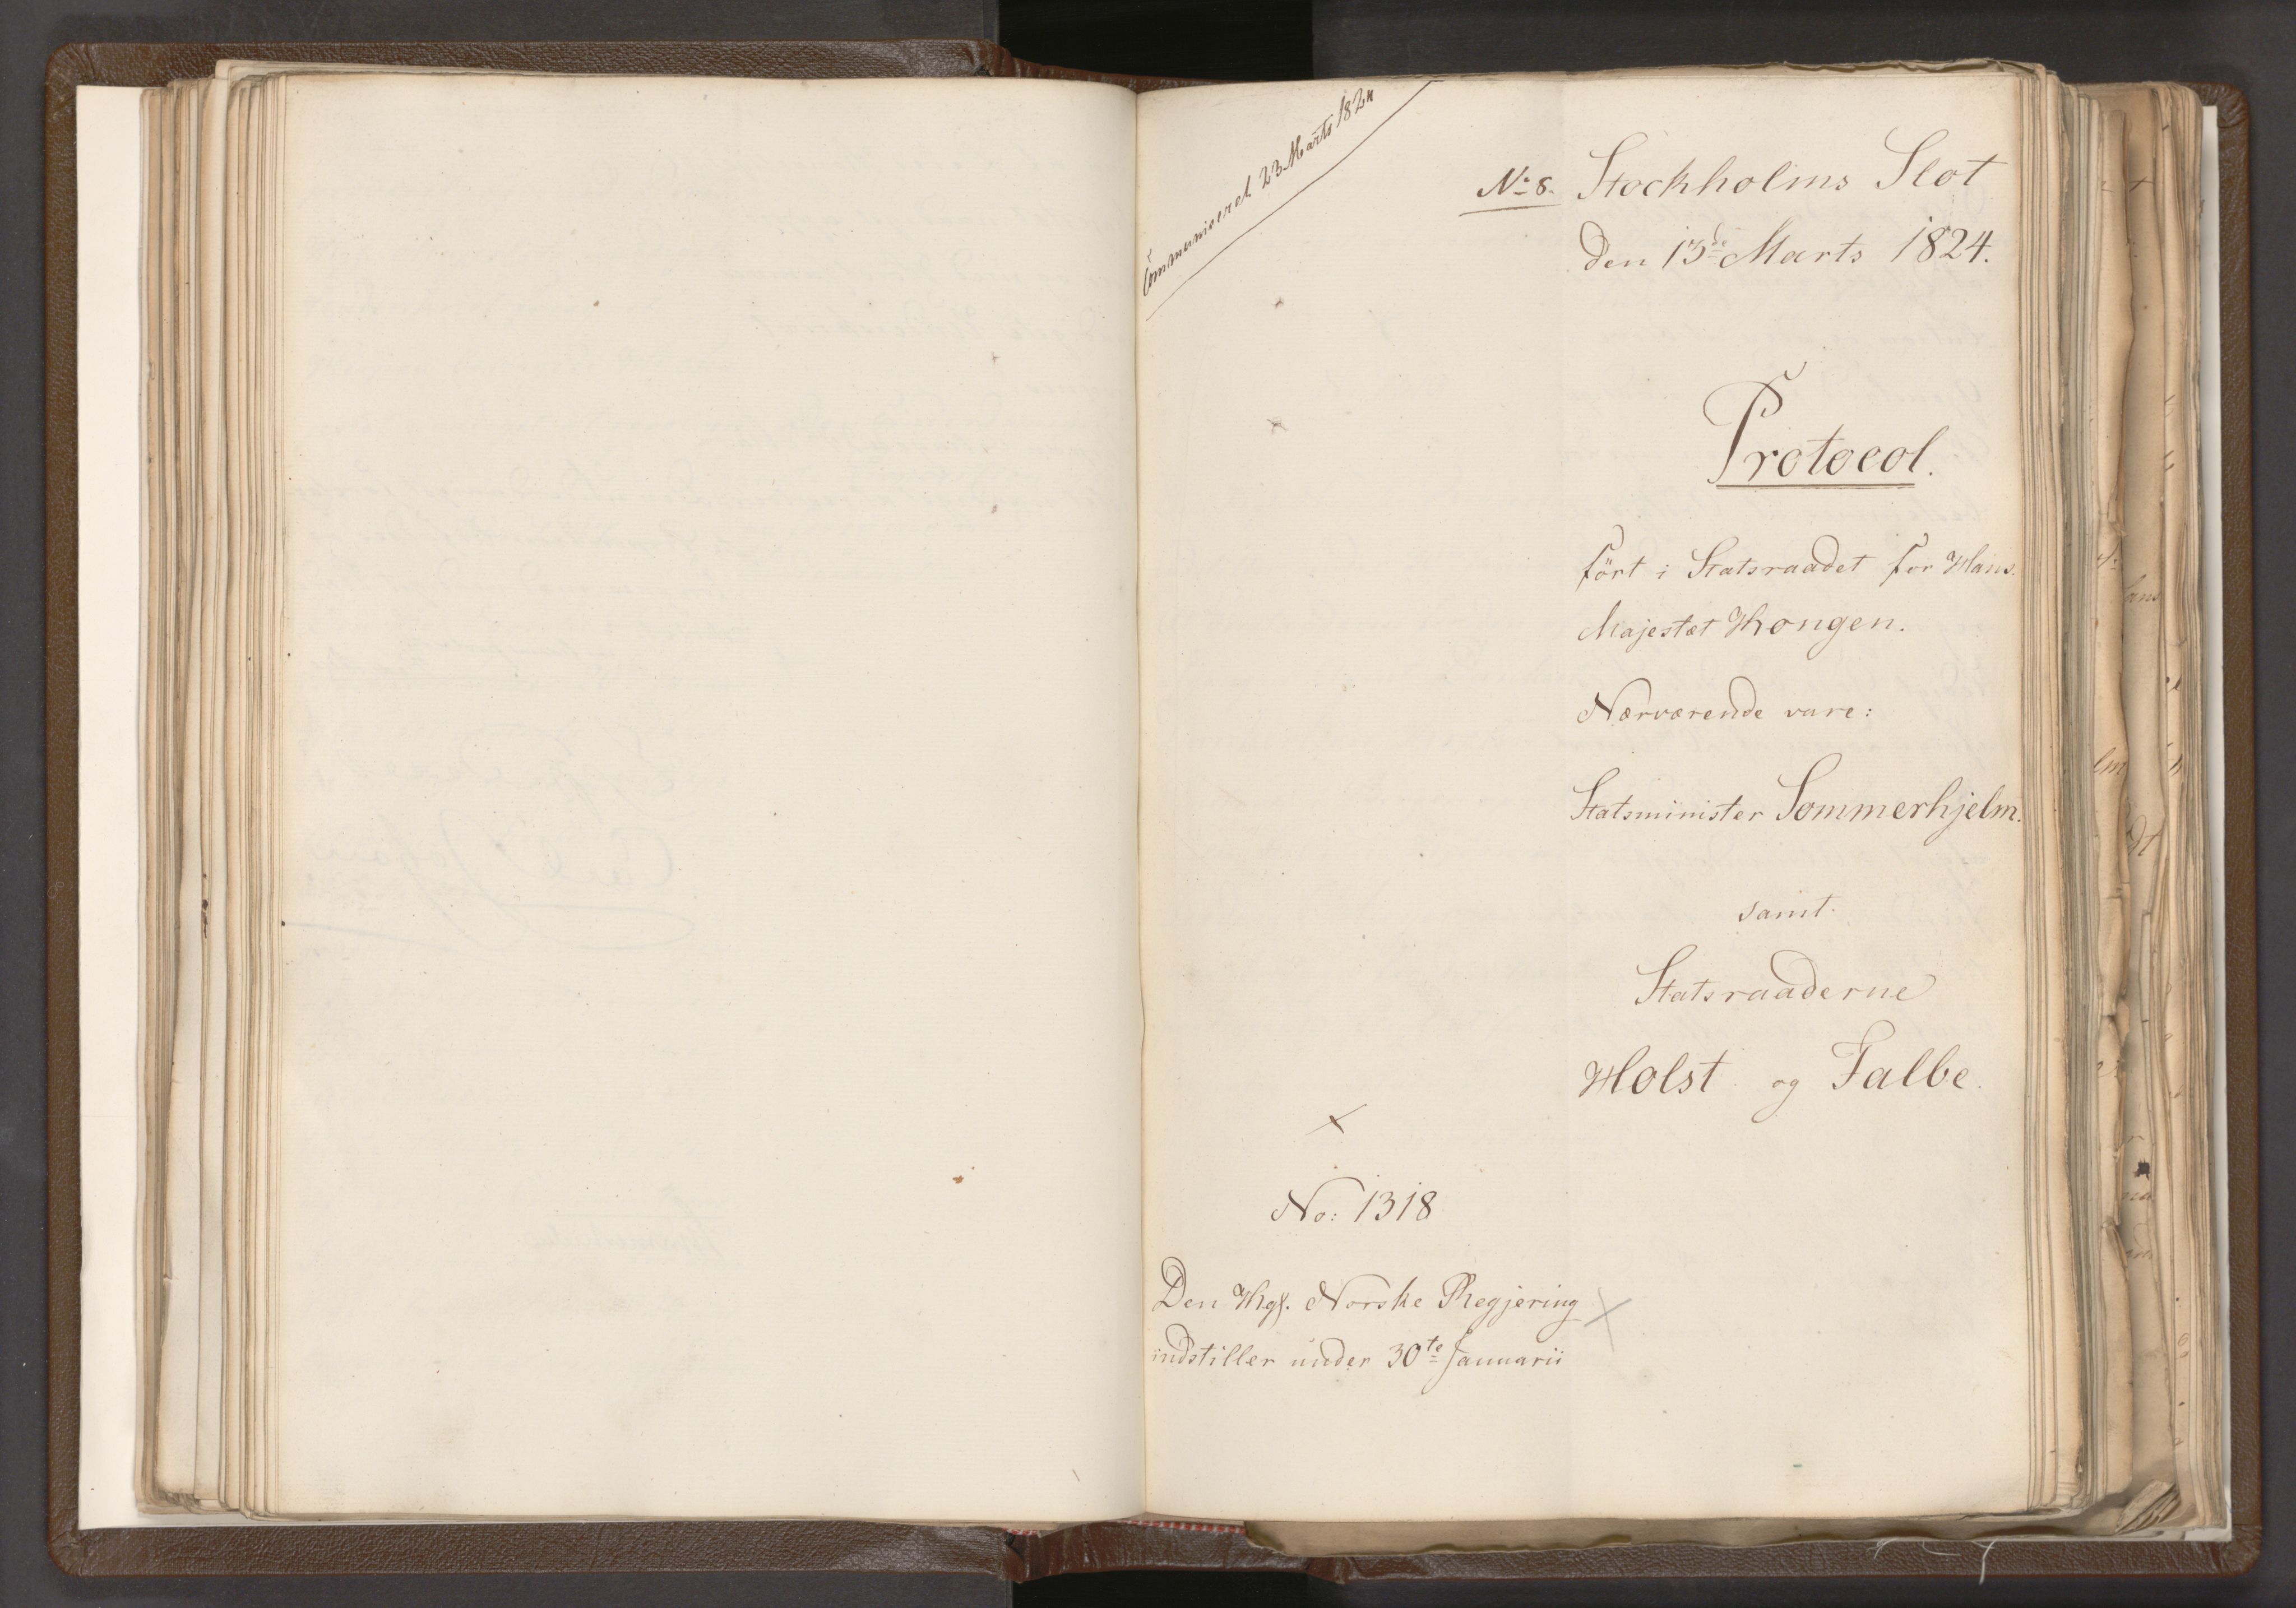 Communiceret 23 Marts 1824
No 8. Stockholms Slot
den 13de Marts 1824.
Protocol.
fört i Statsraadet for Hans
Majestæt Kongen.
Nærværende vare:
Statsminister Sommerhjelm.
samt
Statsraaderne
Holst og Falbe.
No: 1318
Den Kgl. Norske Regjering
indstiller under 30te Januarii